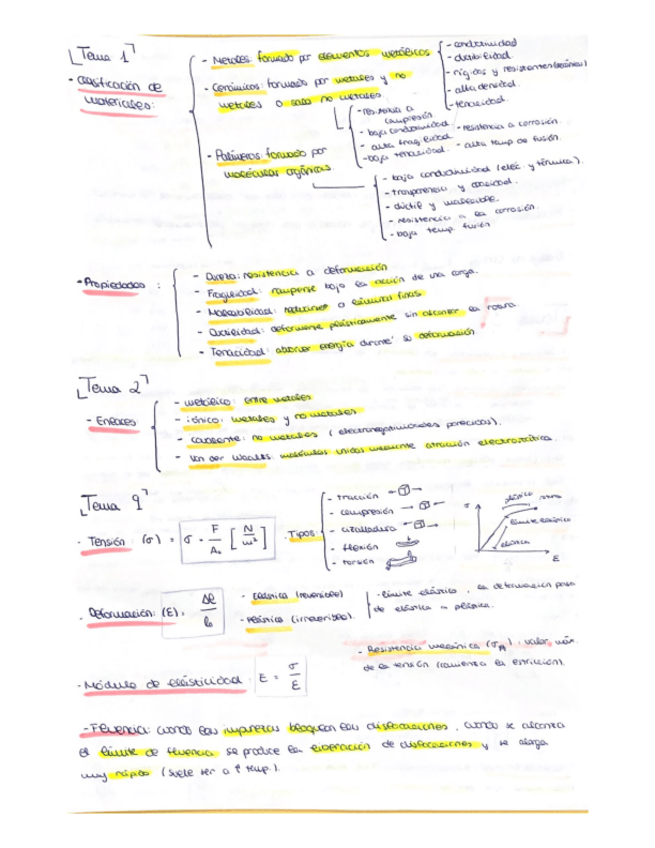 Tema 1
- Clasificación de materiales:
- Metales: formado por elementos metálicos
- conductividad
- ductilidad
- rígidos y resistentes (mecánica)
- alta densidad.
- tenacidad.
- Cerámicos: formado por metales y no
metales o solo no metales.
- resistencia a
compresión.
- baja conductividad
- alta fragilidad
- baja tenacidad.
- resistencia a corrosión.
- alta temp de fusión.
- Polímeros: formado por
moléculas orgánicas
- baja conductividad (eléc y térmica).
- transparencia y densidad.
- dúctil y maleable.
- resistencia a la corrosión.
- baja temp. fusión
- Propiedades :
- Dureza: resistencia a deformación
- Fragilidad: romperse bajo la acción de una carga.
- Maleabilidad: reducirse a láminas finas
- Ductilidad: deformarse plásticamente sin alcanzar la rotura
- Tenacidad: absorber energía durante su deformación
Tema 2
- Enlaces
- metálico: entre metales
- iónico: metales y no metales
- covalente: no metales (electronegatividades parecidas).
- Van der Waals: moléculas unidas mediante atracción electrostática.
Tema 9
- Tensión: (σ) = σ = F/A₀ [N/m²]
Tipos:
- tracción
- compresión
- cizalladura
- flexión
- torsión
σ
plástica
rotura
límite elástico
elástica
ε
- Deformación: (ε) = Δl/l₀
- elástica (reversible)
- plástica (irreversible).
- límite elástico, la deformación pasa
de elástica a plástica.
- Resistencia mecánica : valor máx.
de la tensión (comienza la estricción).
- Módulo de elasticidad: E = σ/ε
- Fluencia: cuando las impurezas bloquean las dislocaciones, cuando se alcanza
el límite de fluencia se produce la liberación de dislocaciones y se alarga
muy rápido (suele ser a ↑ temp.).